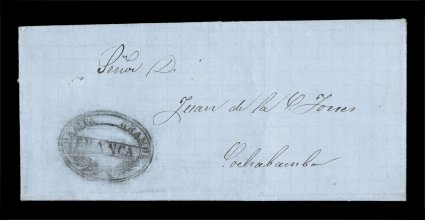 Señor D.
Juan de la C. Torres
Cochabamba
FRANCA